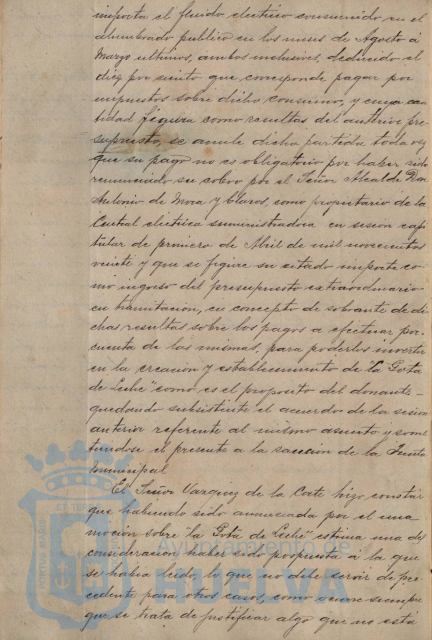 importa el fluido electrico consumido en el
alumbrado publico en los meses de Agosto á
Marzo ultimos, ambos inclusives, deducido el
diez por ciento que corresponde pagar por
impuestos sobre dicho consumo, y cuya can
tidad figura como resultas del anterior pre-
supuesto, se anule dicha partida toda vez
que su pago no es obligatorio por haber sido
renunciado su cobro por el Señor Alcalde Don
Antonio de Mora y Claros, como propietario de la
Central electrica suministradora en sesion capi
tular de primero de Abril de mil novecientos
veinte y que se figure su citado importe co-
mo ingreso del presupuesto extraordinario
en tramitacion, en concepto de sobrante de di-
chas resultas sobre los pagos a efectuar por
cuenta de las mismas, para poderlos invertir
en la creacion y establecimiento de "La Gota
de Leche" como es el proposito del donante-
quedando subsistente el acuerdo de la sesion
anterior referente al mismo asunto y some
tiendose el presente a la sancion de la Junta
municipal
El Señor Vazquez de la Corte hizo constar
que habiendo sido anunciada por el una
mocion sobre "la Gota de Leche" estima una des
consideracion haber sido pospuesta á la que
se habia leido, lo que no debe servir de pre
cedente para otros casos, como ocurre siempre
que se trata de justificar algo que no está
Ayuntamiento de
HUELVA